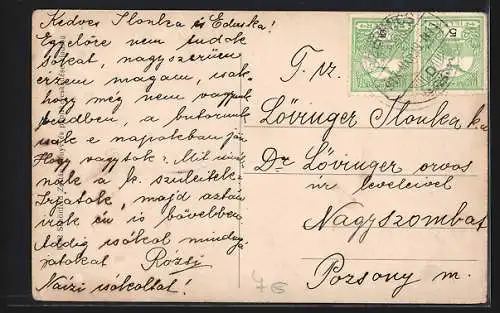 Kedves Ilonka és Eduska!
Egyelőre nem tudok
sokat, nagyszerűen
érzem magam, csak
hogy még nem vagyunk
rendben, a butorunk
csak e napokban jön
Hogy vagytok? Mit
nek a k. szüleitek
Irjatok, majd aztán
irok én is bővebben
Addig csókol mind
játokat Rózsi
Náizi csókoltat!
T. cz.
Lövinger Ilonka k.a.
Dr. Lövinger orvos
úr leveleivel
Nagyszombat
Pozsony m.
5
76